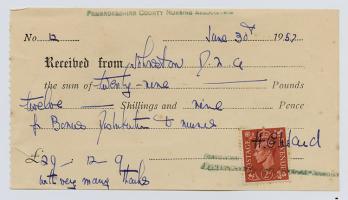 PEMBROKESHIRE COUNTY NURSING ASSOCIATION
No. 12 June 30th 1952
Received from Johnston D.N.A
the sum of twenty-nine Pounds
twelve Shillings and nine Pence
for Bonus to nurse
£29-12-9
with very many thanks
POSTAGE REVENUE